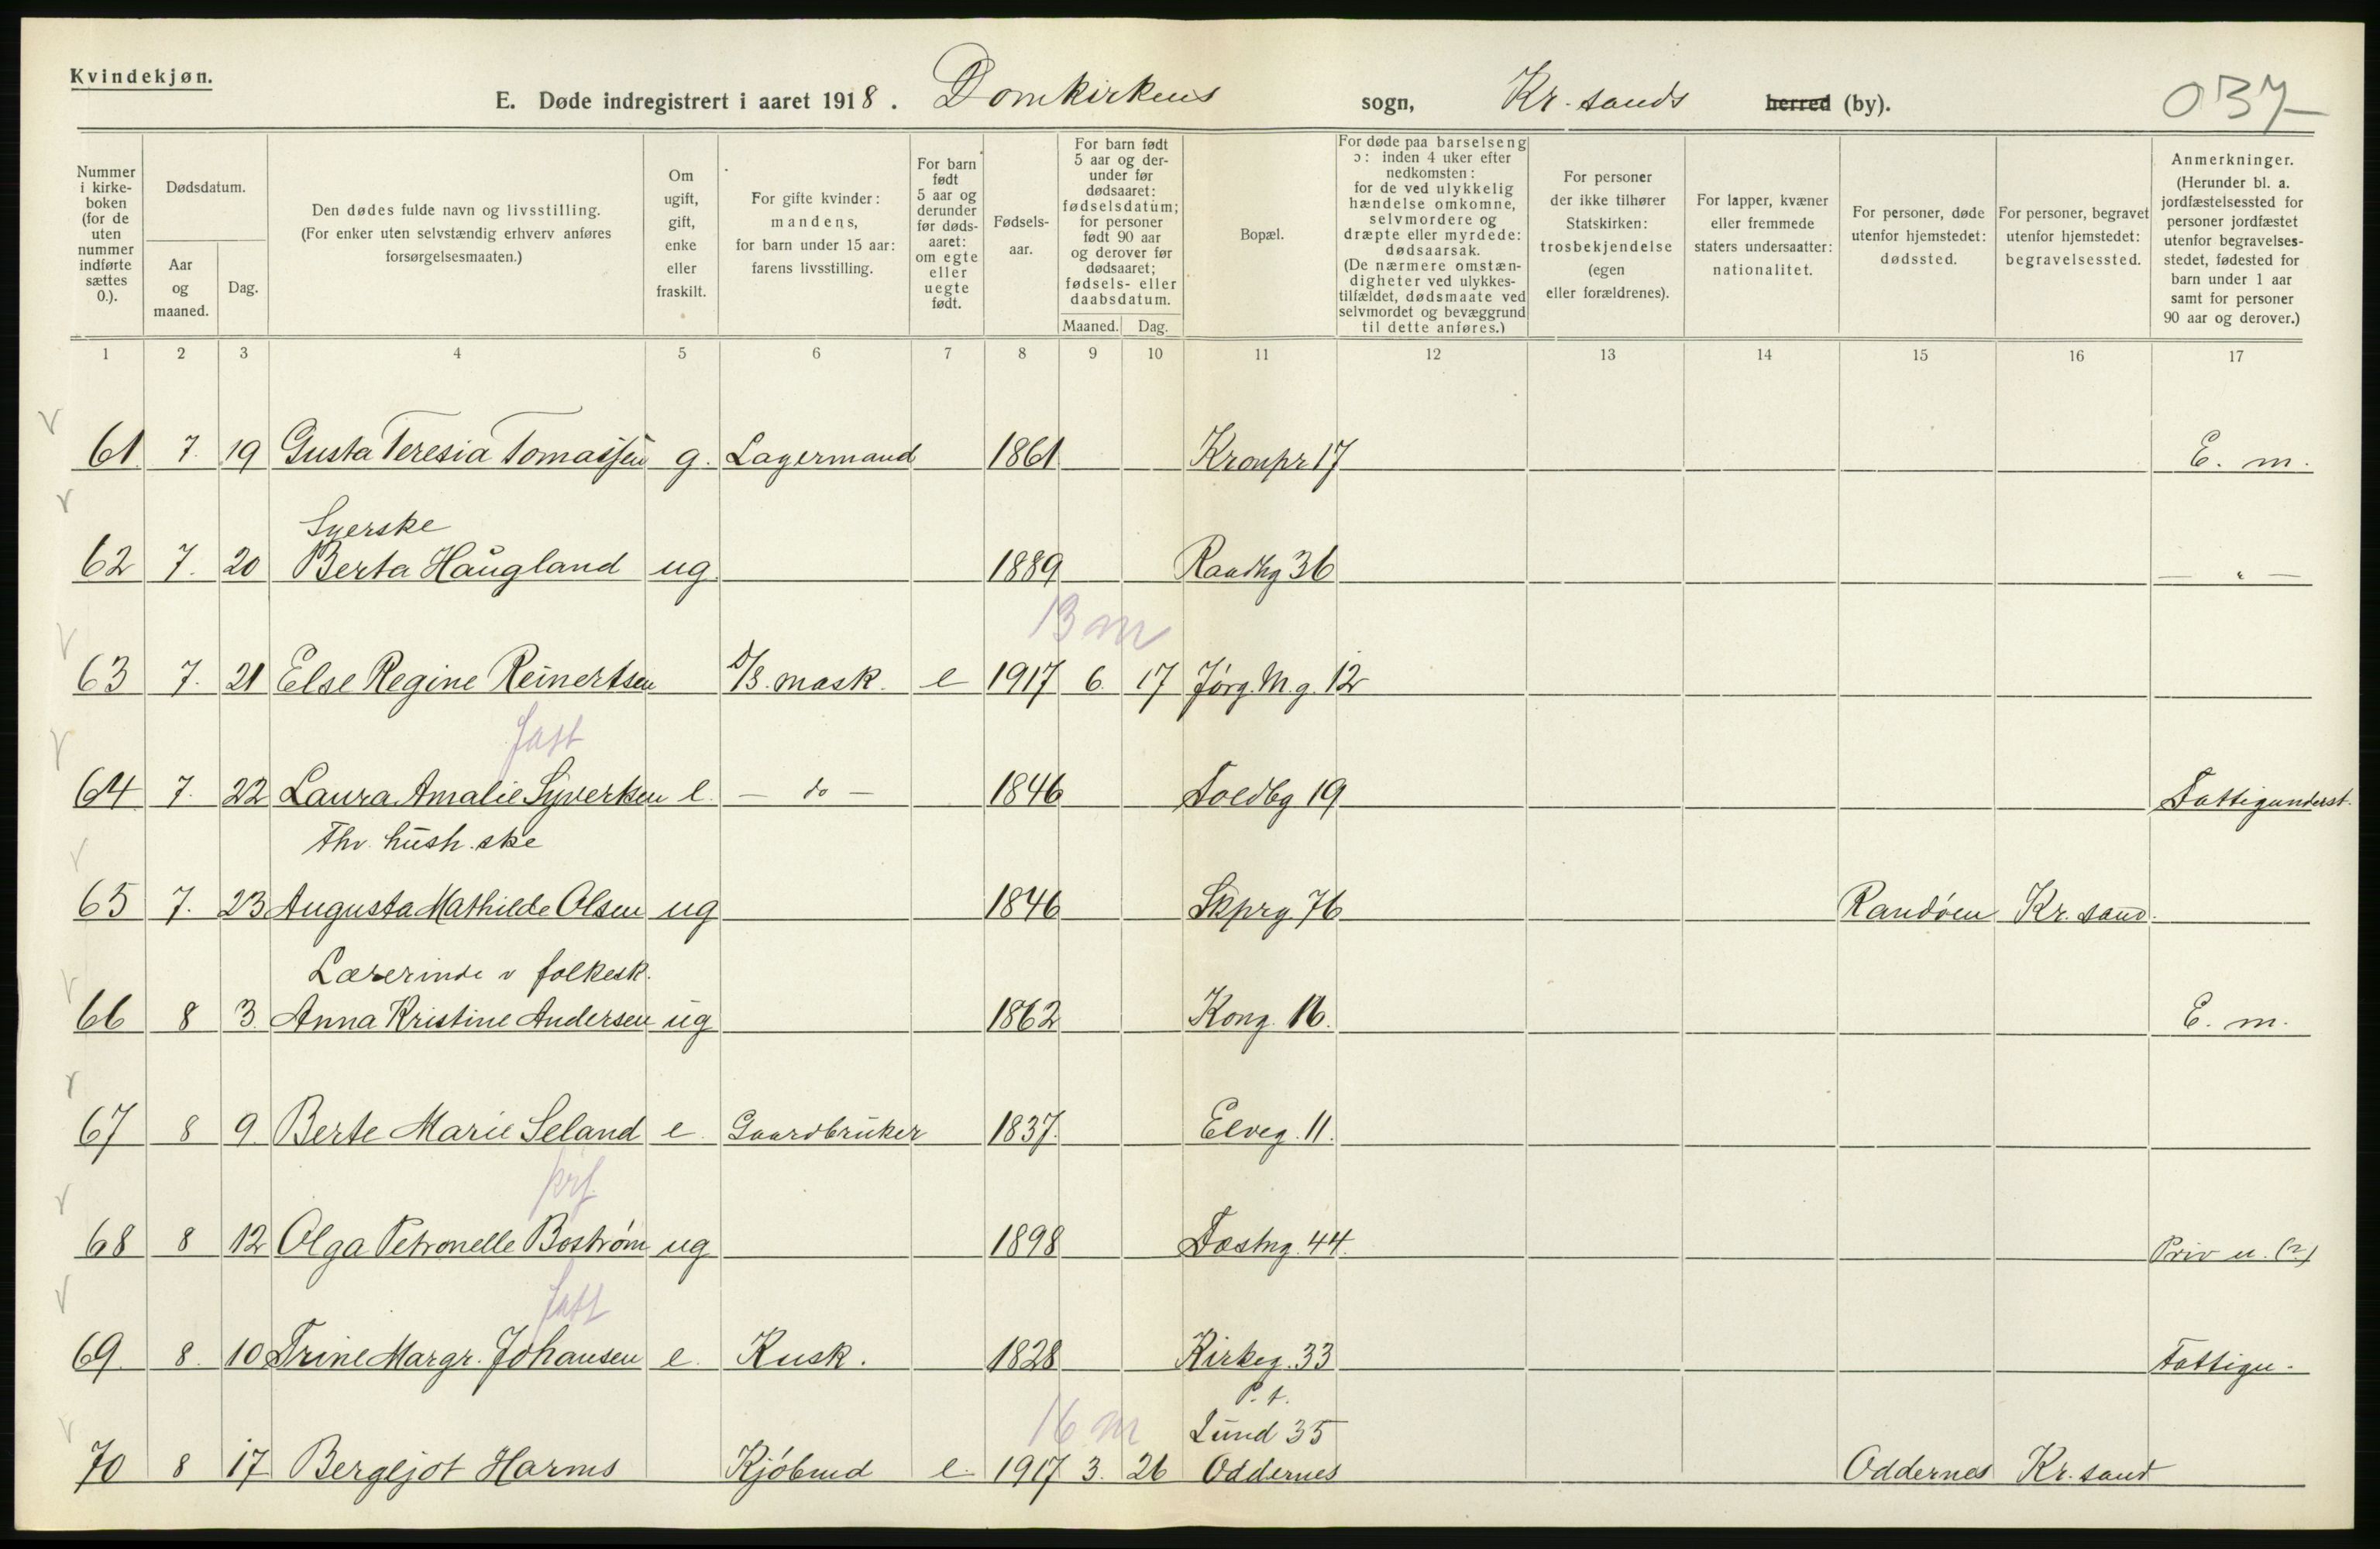 Kvindekjøn.
E. Døde indregistrert i aaret 1918. Domkirkens sogn, Kr.sands herred (by).
037
Nummer i kirke-boken (for de uten nummer indførte sættes 0.).
Dødsdatum.
Aar og maaned.
Dag.
Den dødes fulde navn og livsstilling. (For enker uten selvstændig erhverv anføres forsørgelsesmaaten.)
Om ugift, gift, enke eller fraskilt.
For gifte kvinder: mandens, for barn under 15 aar: farens livsstilling.
For barn født 5 aar og derunder før døds-aaret: om egte eller uegte født.
Fødsels-aar.
For barn født 5 aar og der-under før dødsaaret: fødselsdatum; for personer født 90 aar og derover før dødsaaret; fødsels- eller daabsdatum.
Maaned. Dag.
Bopæl.
For døde paa barselseng ɔ: inden 4 uker efter nedkomsten: for de ved ulykkelig hændelse omkomne, selvmordere og dræpte eller myrdede: dødsaarsak. (De nærmere omstæn-digheter ved ulykkes-tilfældet, dødsmaate ved selvmordet og bevæggrund til dette anføres.)
For personer der ikke tilhører Statskirken: trosbekjendelse (egen eller forældrenes).
For lapper, kvæner eller fremmede staters undersaatter: nationalitet.
For personer, døde utenfor hjemstedet: dødssted.
For personer, begravet utenfor hjemstedet: begravelsessted.
Anmerkninger. (Herunder bl. a. jordfæstelsessted for personer jordfæstet utenfor begravelses-stedet, fødested for barn under 1 aar samt for personer 90 aar og derover.)
1 2 3 4 5 6 7 8 9 10 11 12 13 14 15 16 17
61. 7. 19 Gusta Teresia Tomassen g. Lagermand 1861 Kronpr 17 E. m.
Syerske
62 7. 20 Berta Haugland ug. 1889 Raadhg 36 — " —
13 m
63 7. 21 Else Regine Reinertsen D/S. mask. e 1917 6. 17 Jørg. M. g. 12
fatt
64 7. 22 Laura Amalie Syvertsen e. — do — 1846 Toldbg 19 Fattigunderst.
Fhv. hush.ske
65 7. 23 Augusta Mathilde Olsen ug 1846 Skprg 76 Randøen Kr. sand.
Lærerinde v folkesk.
66 8 3. Anna Kristine Andersen ug 1862 Kong. 16. E. m.
67 8 9. Berte Marie Seland e. Gaardbruker 1837. Elveg. 11.
prf.
68 8 12 Olga Petronelle Bostrøm ug 1898 Fæstng. 44. Priv u. (?)
fatt
69. 8. 10 Trine Margr. Johansen e. Kusk. 1828 Kirkeg. 33 Fattigu.
P. t.
16 m Lund 35
70 8 17 Bergljot Harms Kjøbmd e. 1917 3. 26 Oddernes Oddernes Kr. sand